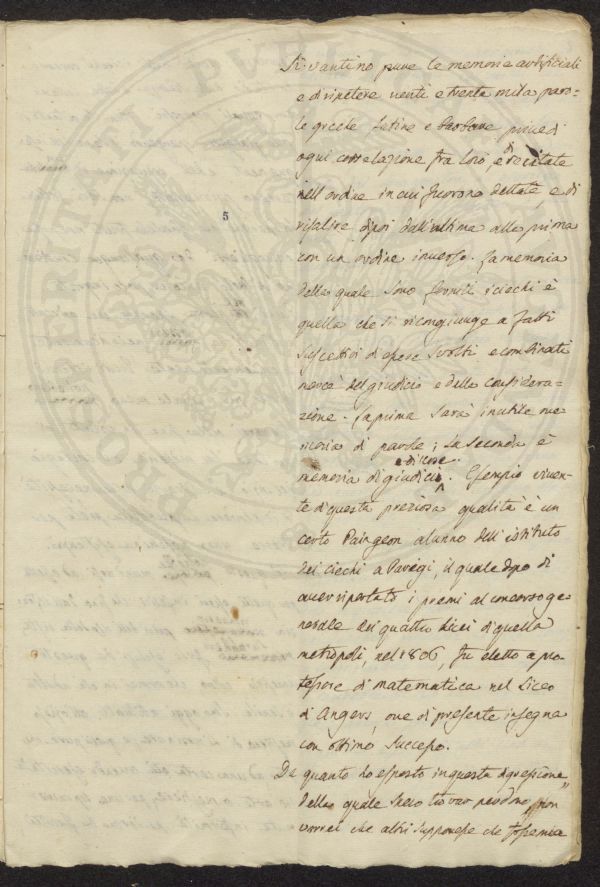 Si vantino pure le memorie artificiali
e di ripetere venti e trenta mila paro-
le greche latine e barbare prive di
ogni correlazione fra loro, e di recitarle
nell'ordine in cui furono dettate, e di
risalire dipoi dall'ultima alla prima
con un ordine inverso. La memoria
della quale sono forniti i ciechi è
quella che si ricongiunge a fatti
suscettivi di essere svolti e combinati
mercè del giudicio e della considera-
zione. La prima sarà inutile me-
moria di parole; la seconda è
e di cose
memoria di giudicii. Esempio viven-
te di questa preziosa qualità è un
certo Paingeon alunno dell'istituto
dei ciechi a Parigi, il quale dopo di
aver riportato i premi al concorso ge-
nerale dei quattro licei di quella
metropoli, nel 1806, fu eletto a pro-
fessore di matematica nel liceo
di Angers, ove di presente insegna
con ottimo successo.
Da quanto ho esposto in questa digressione
della quale spero trovar perdono, non
vorrei che altri supponesse che
5